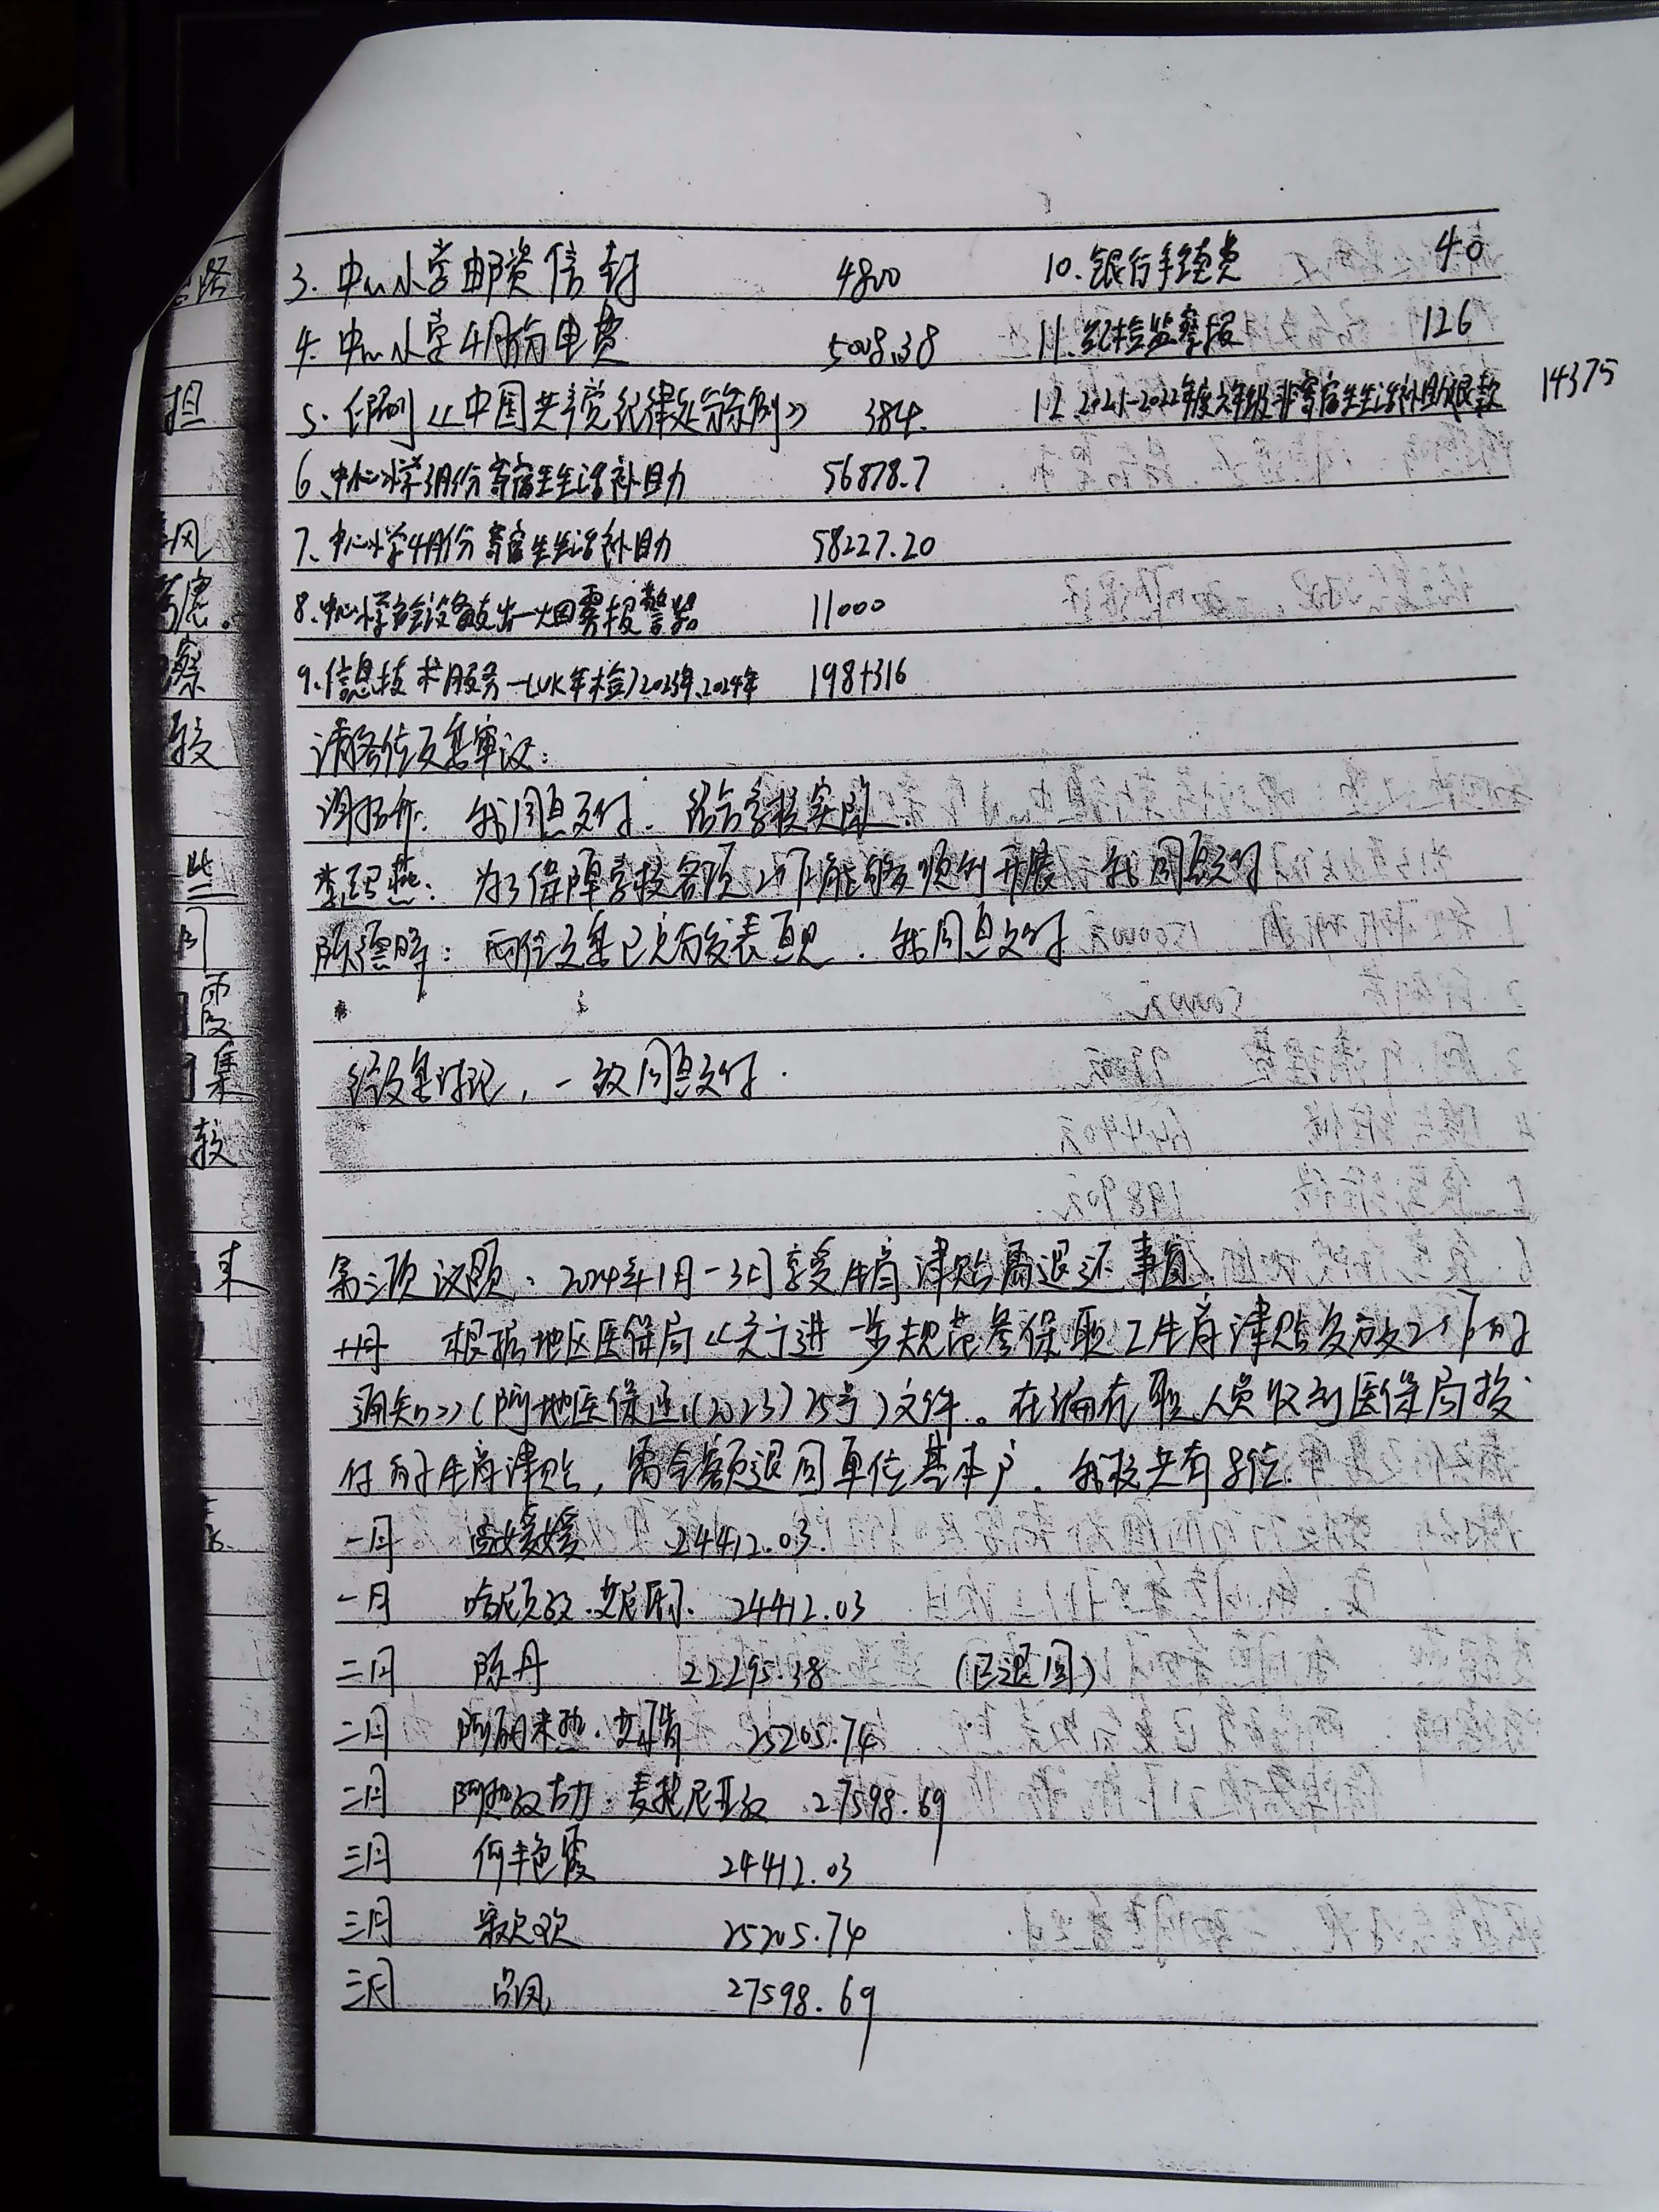 3. 中心小学邮资信封 4800 10. 银行手续费 40
4. 中心小学4月份电费 5008.38 11. 纪检监察报 126
5. 印刷《中国共产党纪律处分条例》 384. 12. 2021-2022年度六年级非寄宿生生活补助退款 14375
6、中心小学3月份寄宿生生活补助 56878.7
7、中心小学4月份寄宿生生活补助 58227.20
8、中心小学宿舍设备支出一烟雾报警器 11000
9、信息技术服务一(UK年检)2023年、2024年 198+316
请各位委员审议:
我同意支付. 结合学校实际.
为了保障学校各项工作能够顺利开展 我同意支付
陈德晖: 两位委员已充分发表意见. 我同意支付
经委员讨论,一致同意支付.
第三项议题: 2024年1月-3月享受生育津贴需退还事宜.
根据地区医保局《关于进一步规范参保职工生育津贴发放工作的
通知》(阿地医保通(2023)25号)文件。在编在职人员收到医保局拨
付的生育津贴,需全额退回单位基本户. 我校共有8位.
一月 高媛媛 24412.03.
一月 哈尼克孜.艾尼瓦尔. 24412.03
二月 陈丹 22295.38 (已退回)
二月 阿丽米热. 25205.74
二月 阿孜古力.麦提尼亚孜 27598.69
三月 何艳霞 24412.03
三月 欢欢 25205.74
三月 吕凤 27598.69